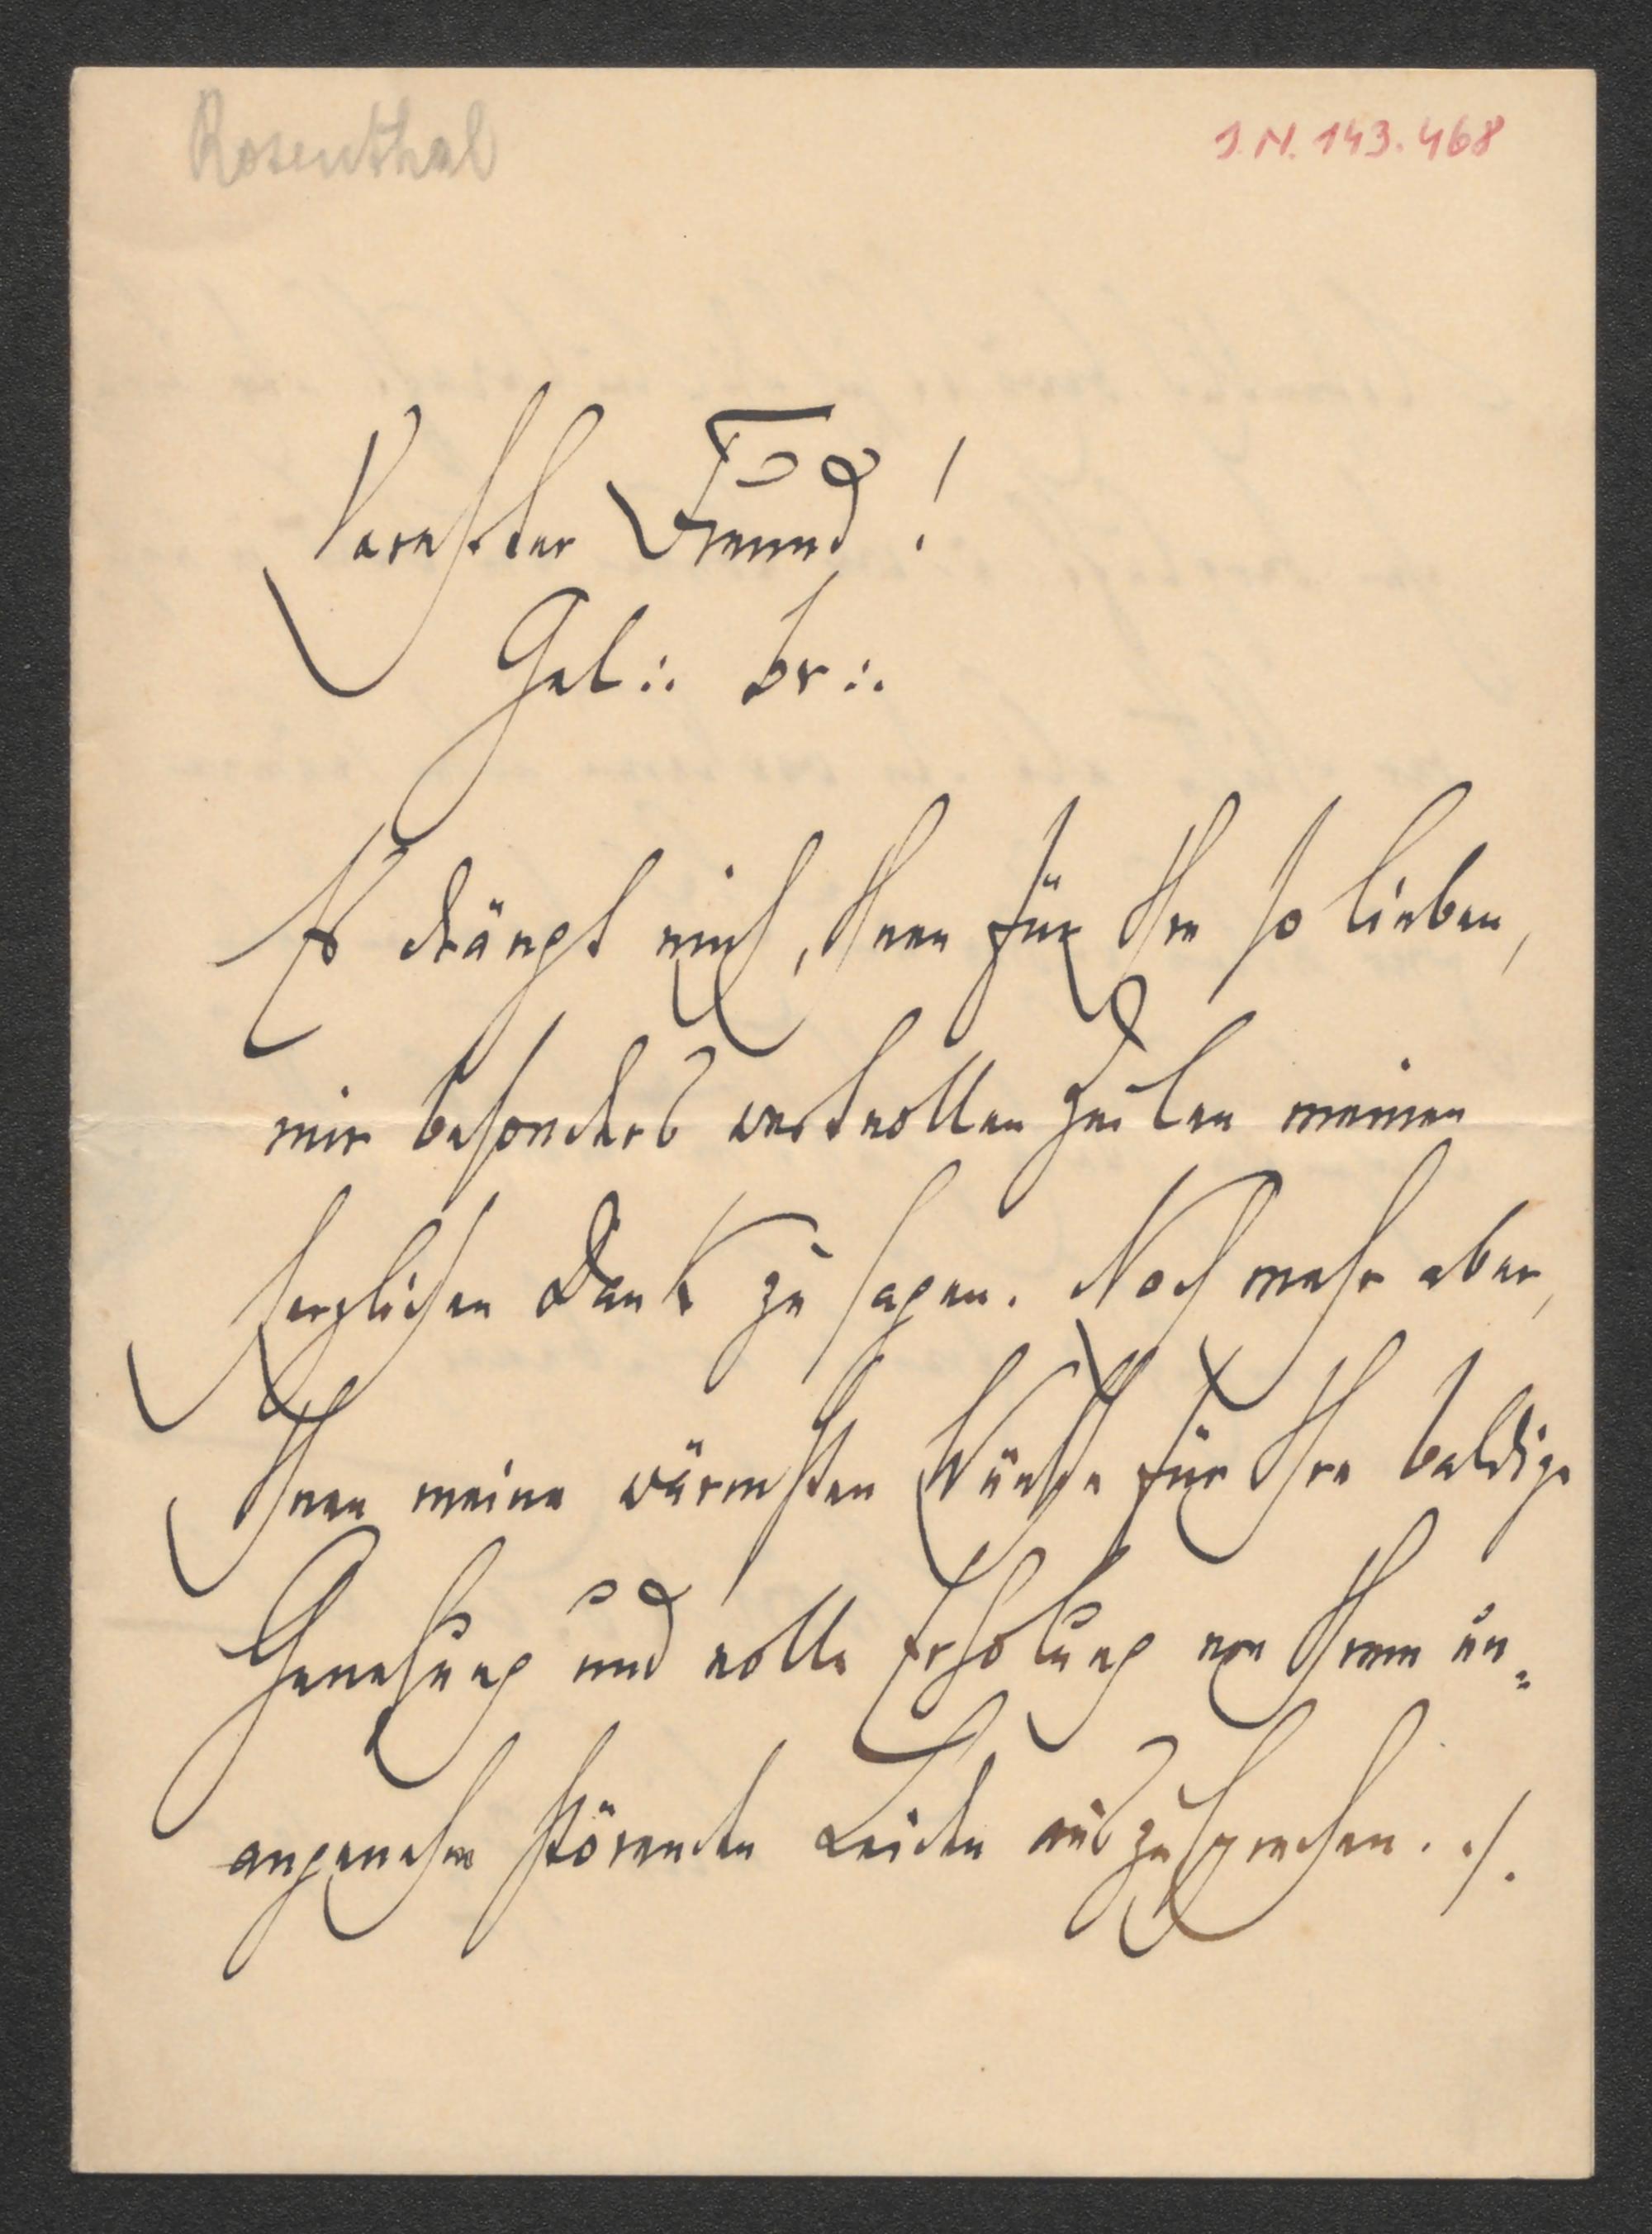 Rosenthal
I.N. 143.468
Verehrter Freund!
Gel∴ Br∴
Es drängt mich, Ihnen für Ihre so lieben,
mir besonders wertvollen Zeilen meinen
herzlichen Dank zu sagen. Noch mehr aber,
Ihnen meine wärmsten Wünsche für Ihre baldige
Genesung und volle Erholung von Ihrem un=
angenehm störenden Leiden auszusprechen. ./.